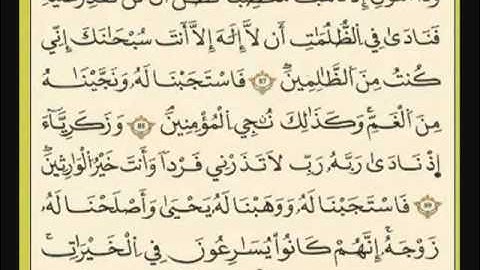 فَنَادَىٰ فِي الظُّلُمَٰتِ أَن لَّا إِلَٰهَ إِلَّا أَنتَ سُبْحَانَكَ إِنِّي
كُنتُ مِنَ الظَّالِمِينَ ﴿٨٧﴾ فَاسْتَجَبْنَا لَهُ وَنَجَّيْنَاهُ
مِنَ الْغَمِّ وَكَذَٰلِكَ نُنجِي الْمُؤْمِنِينَ ﴿٨٨﴾ وَزَكَرِيَّآ
إِذْ نَادَىٰ رَبَّهُ رَبِّ لَا تَذَرْنِي فَرْدًا وَأَنتَ خَيْرُ الْوَارِثِينَ
﴿٨٩﴾ فَاسْتَجَبْنَا لَهُ وَوَهَبْنَا لَهُ يَحْيَىٰ وَأَصْلَحْنَا لَهُ
زَوْجَهُ إِنَّهُمْ كَانُوا يُسَارِعُونَ فِي الْخَيْرَاتِ